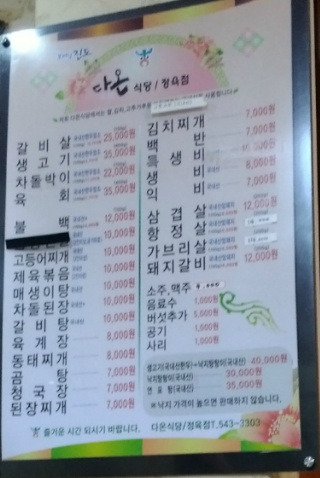 진도
다온 식당/정육점
갈비살 25,000원
생고기 35,000원
차돌박이 22,000원
육회 35,000원
불백 12,000원
10,000원
고등어찌개 10,000원
제육볶음 10,000원
매생이탕 10,000원
차돌된장 10,000원
갈비탕 10,000원
육계장 8,000원
동태찌개 8,000원
곰탕 7,000원
청국장 7,000원
된장찌개 7,000원
김치찌개 7,000원
백반 7,000원
특생비
생비 7,000원
익비 7,000원
삼겹살 12,000원
항정살
가브리살
돼지갈비 12,000원
소주,맥주
음료수 1,000원
버섯추가 5,000원
공기 1,000원
사리 1,000원
생고기(국내산한우)+낙지탕탕이(국내산) 40,000원
낙지탕탕이(국내산) 30,000원
연포탕(국내산) 35,000원
※낙지 가격이 높으면 판매하지 않습니다.
즐거운 시간 되시기 바랍니다. 다온식당/정육점T.543-3303